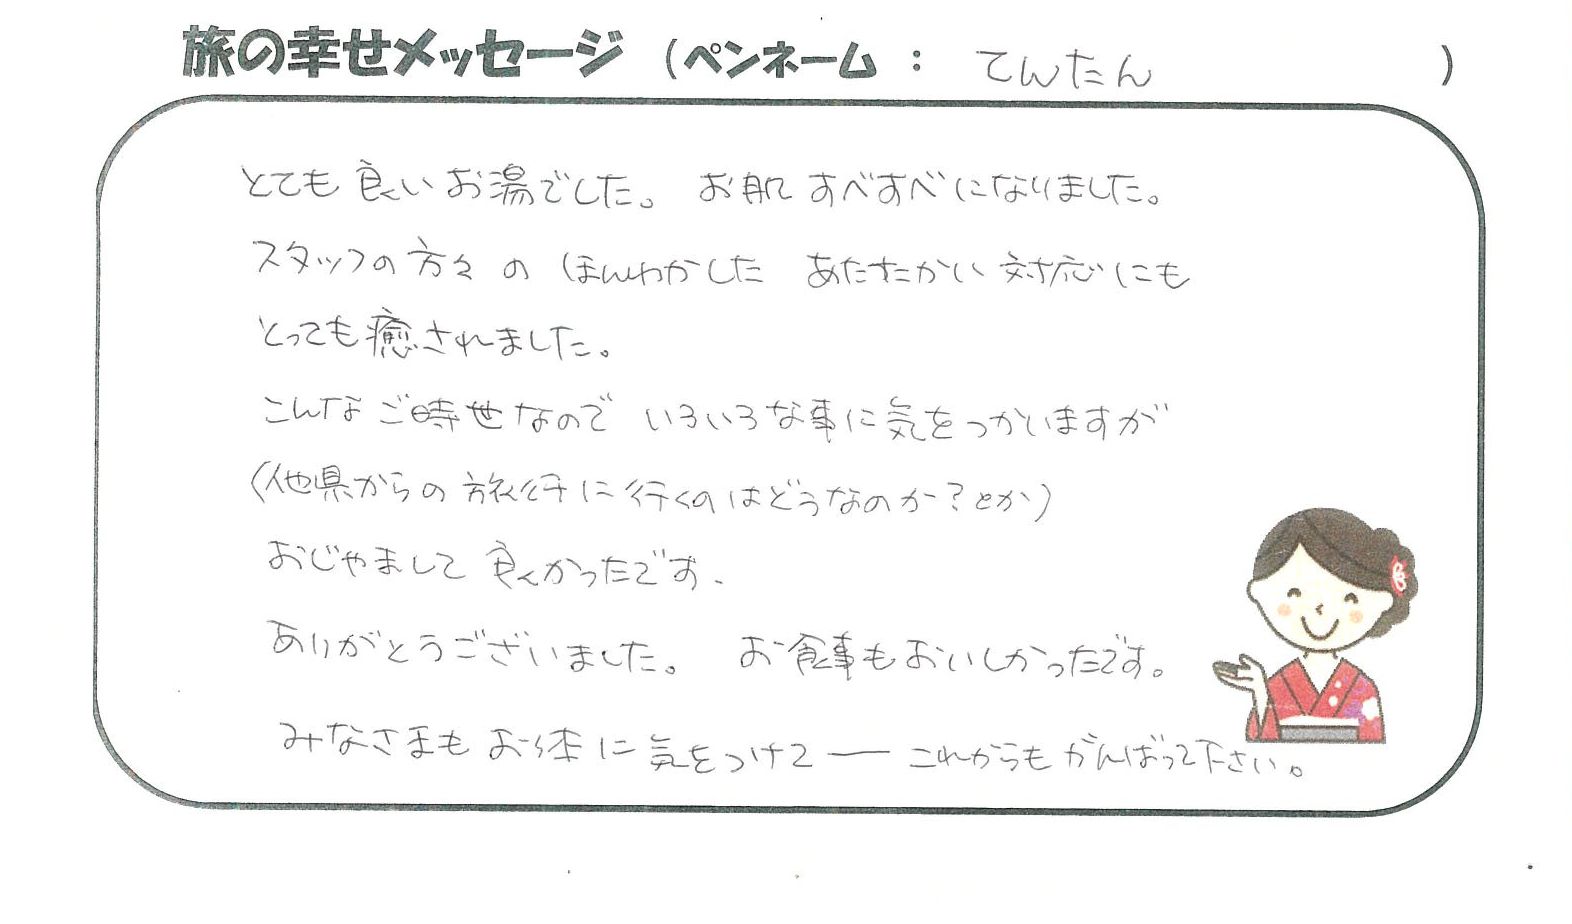 旅の幸せメッセージ （ペンネーム ： てんたん ）
とても良いお湯でした。 お肌すべすべになりました。
スタッフの方々の ほんわかした あたたかい対応にも
とっても癒されました。
こんなご時世なので いろいろな事に気をつかいますが
（他県からの旅行に行くのはどうなのか？とか）
おじゃまして良かったです.
ありがとうございました。 お食事もおいしかったです。
みなさまもお体に気をつけて ― これからもがんばって下さい。